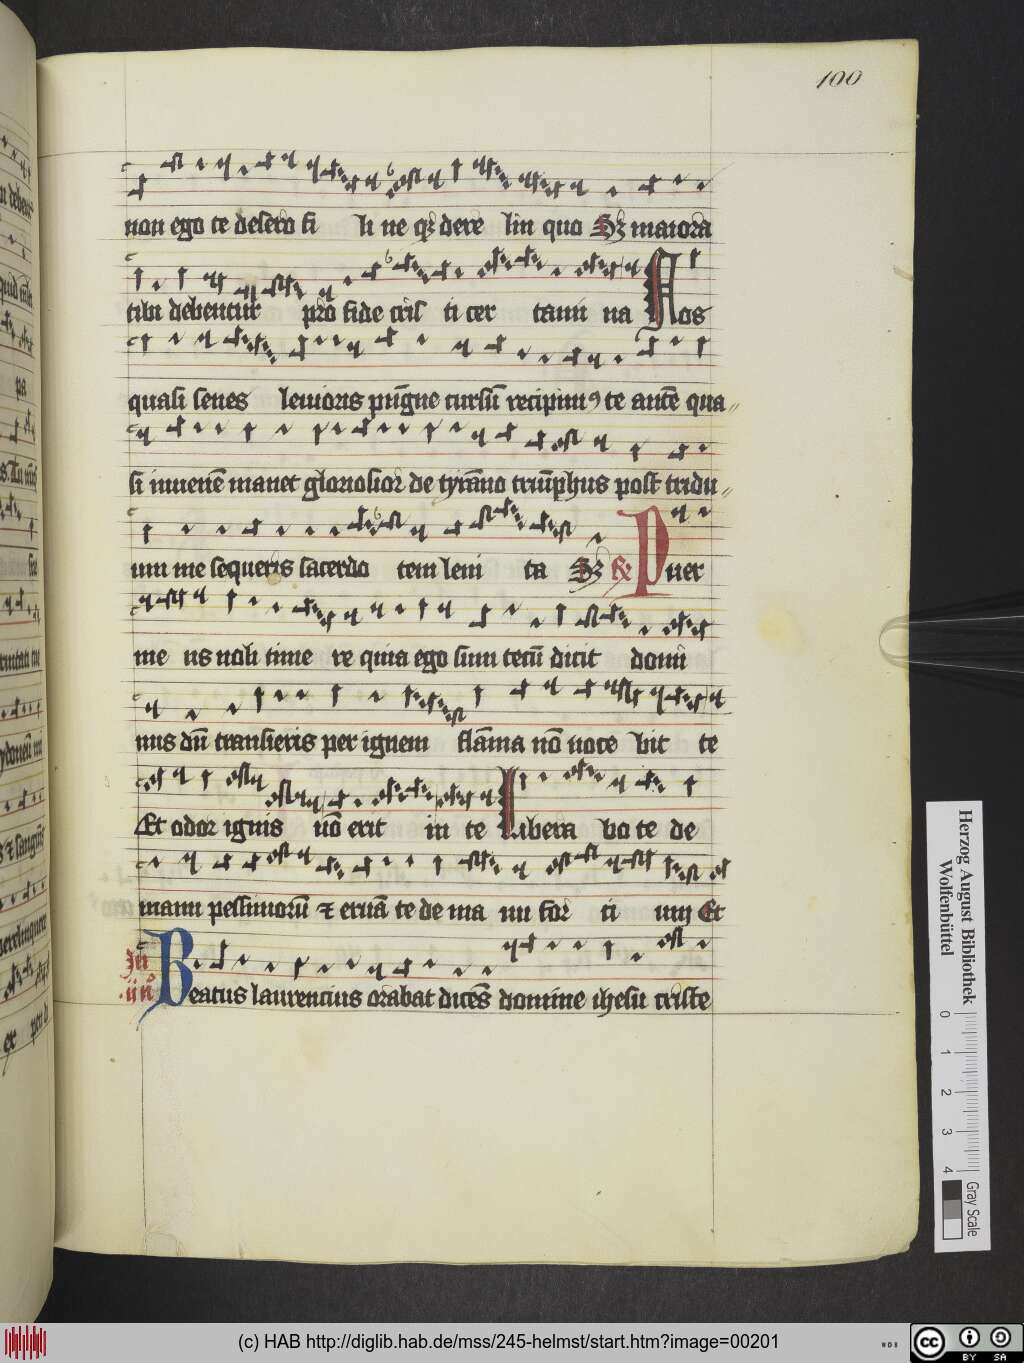 100
non ego te desero fi li ne qꝫ dere lin quo Sꝫ maiora
tibi debentur pro fide cris ti cer tami na Nos
quasi senes leuioris pūgne cursū recipimꝰ te autē qua
si iuuenē manet gloriosior de tyrāno triūphus post tridu
um me sequeris sacerdo tem leui ta Sꝫ ꝶ Puer
me us noli time re quia ego sum tecū dicit domi
nus dū transieris per ignem flāma nō noce bit te
Et odor ignis nō erit in te Libera bo te de
manu pessimorū ⁊ eruā te de ma nu for ti um Et
Jn
iiiͦ Beatus laurencius orabat dicēs domine ihesu criste
Herzog August Bibliothek
Wolfenbüttel
0 1 2 3 4
Gray Scale
(c) HAB http://diglib.hab.de/mss/245-helmst/start.htm?image=00201
WDB
cc BY SA